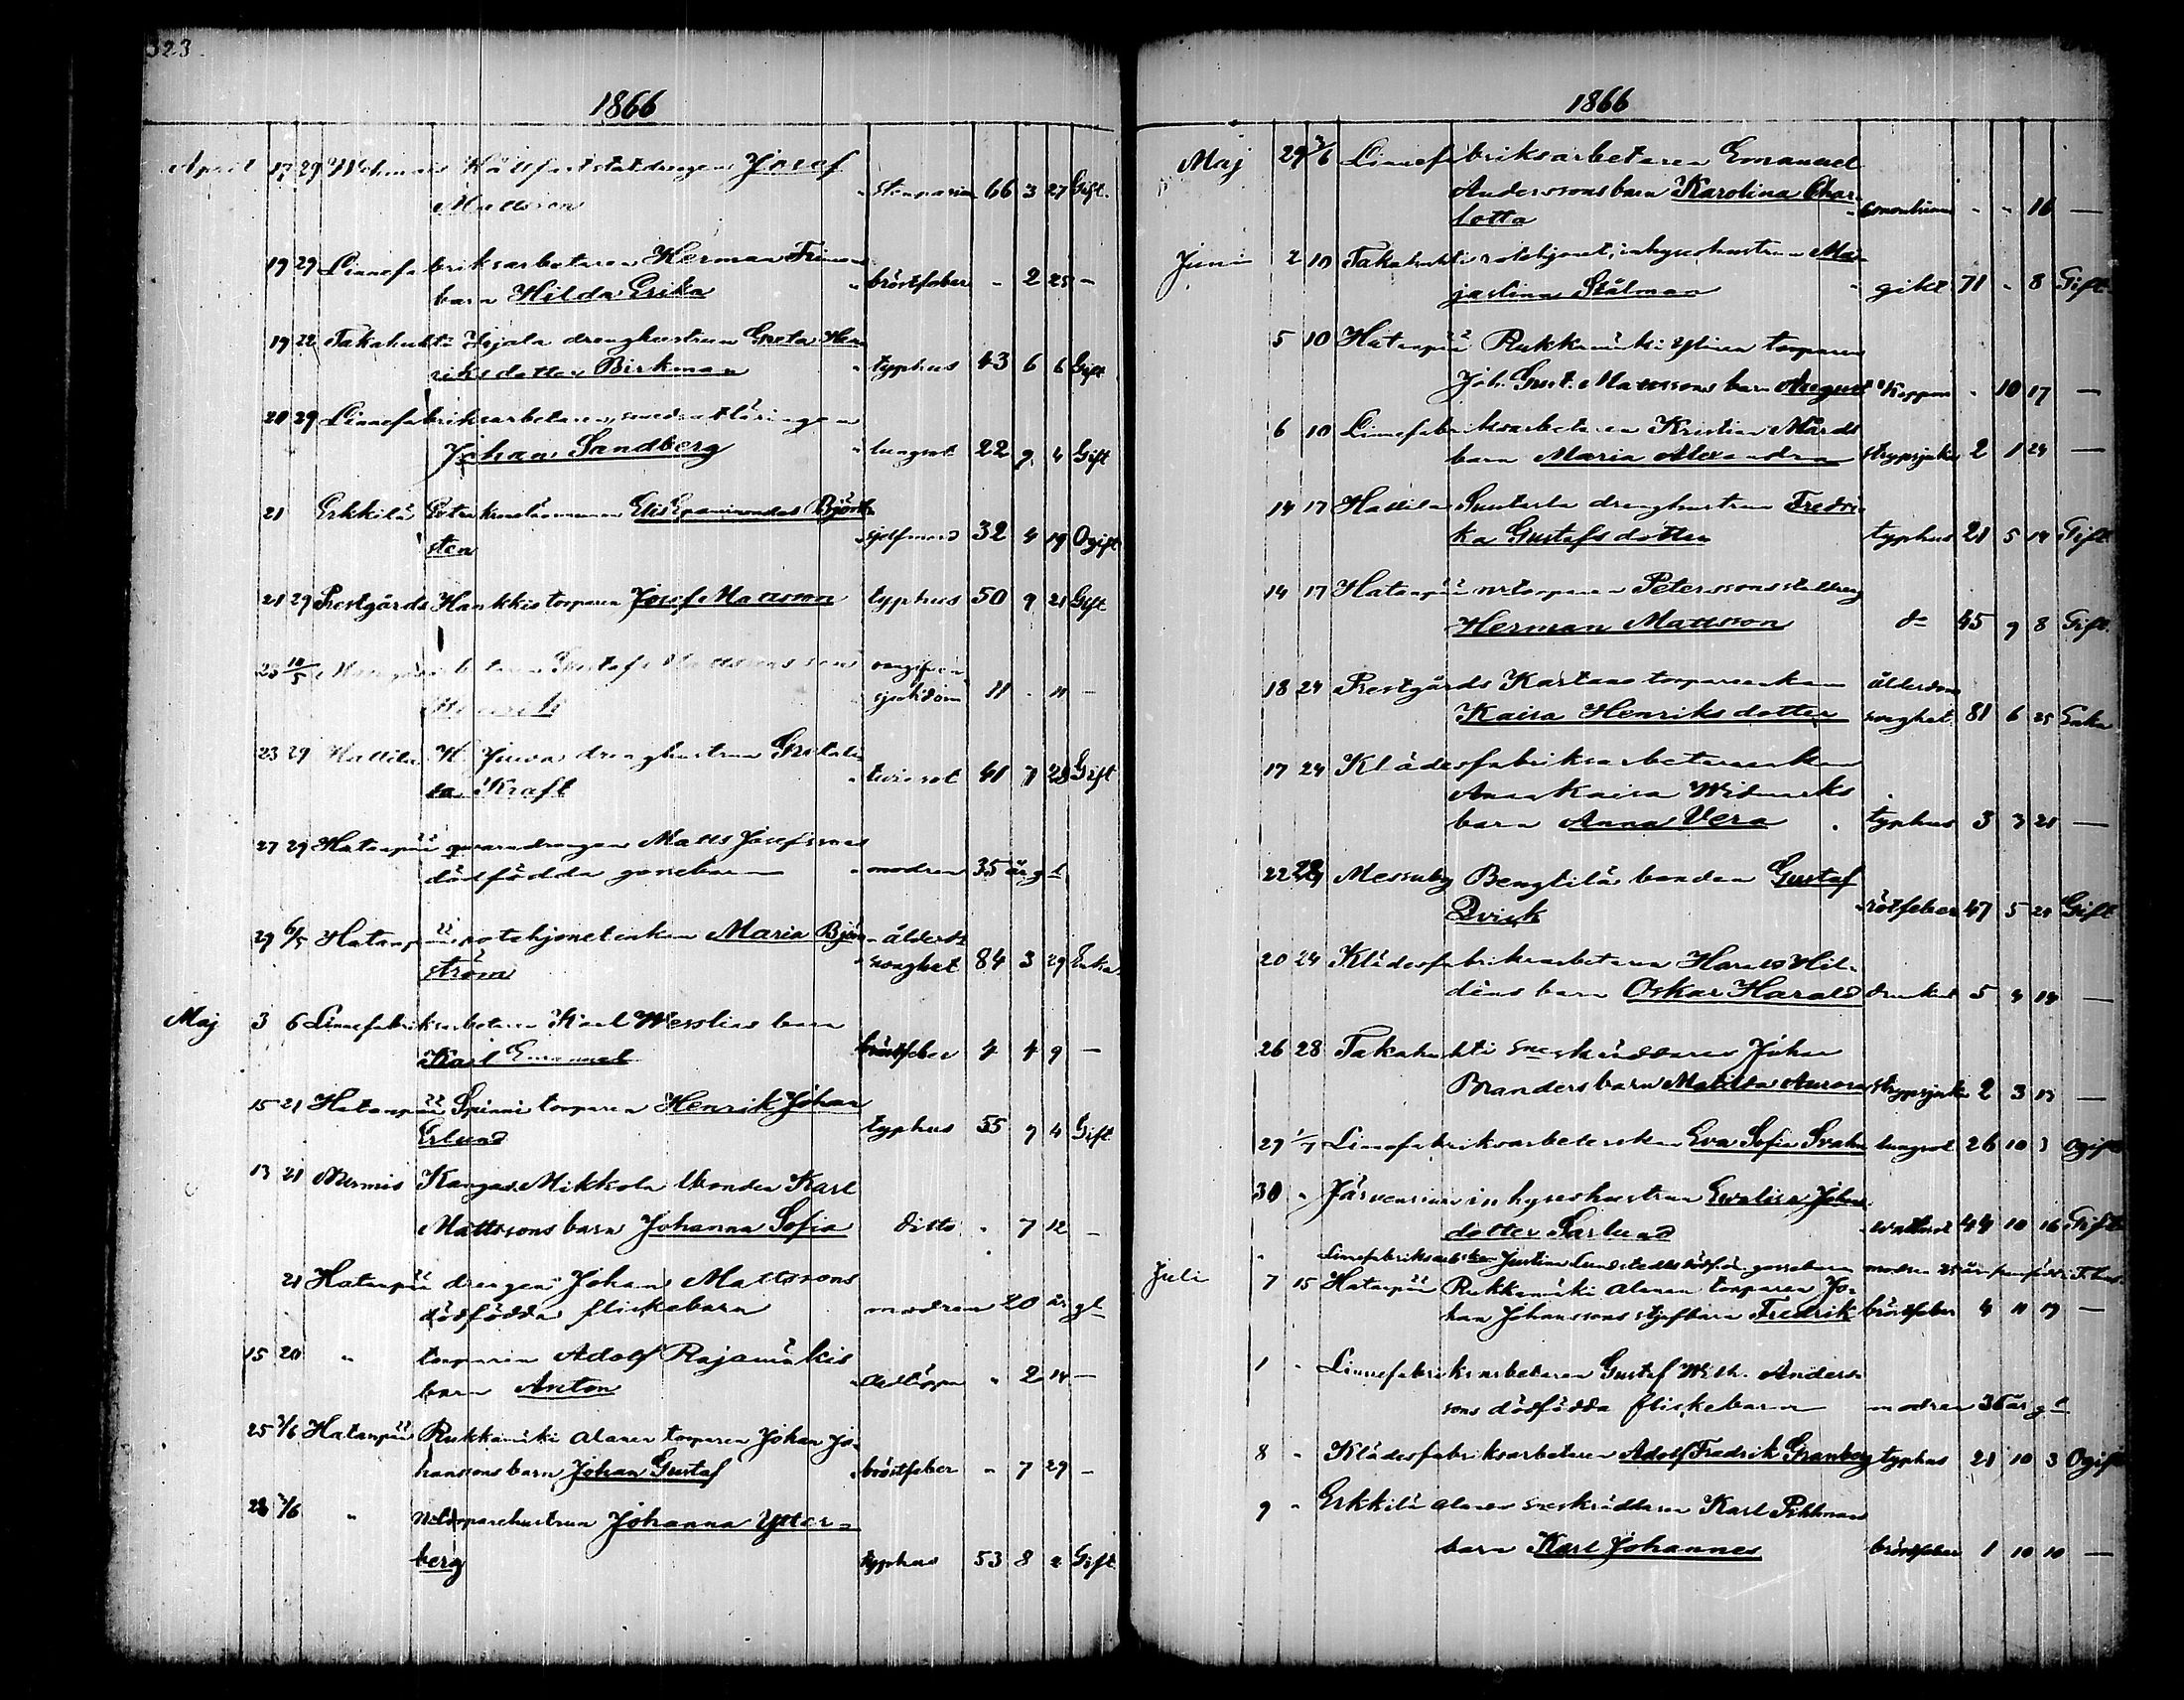 323
1866
April 17 29 Hållfast statdrengen Josef
Mattsson 66 3 27 Gift
19 29 Linnefabriksarbetaren Herman
barn Hilda Erika bröstfeber - 2 25 -
19 22 Takahuhti drenghustrun Greta Hen
riksdotter Birkman typhus 43 6 6 Gift
20 29 Linnefabriksarbetaren
Johan Sandberg lungsot 22 9 4 Gift
21 Erkkilä Elis Epaminondas Björk
sten sjelfmord 32 4 19 Ogift
21 29 Prestgårds Hankkis torparen Josef Mattsson typhus 50 9 21 Gift
23 10/5 Gustaf Mattssons son
Henrik sjukdom 11 - 11 -
23 29 Hallila drenghustrun
Kraft 41 7 28 Gift
27 29 Hatanpää qvarndrengen Matts Josefssons
dödfödda gossebarn modren 35 år gl
29 6/5 Hatanpää rotehjonet enkan Maria Björ ålderdoms
ström svaghet 84 3 29 Enka
Maj 3 6 Linnefabriksarbetaren Karl Wesslins barn
Karl Emanuel bröstfeber 4 4 9 -
15 21 Hatanpää Spinni torparen Henrik Johan
Erlund typhus 55 9 4 Gift
13 21 Nurmis Kangas Mikkola bonden Karl
Mattssons barn Johanna Sofia ditto - 7 12 -
21 Hatanpää drengen Johan Mattssons
dödfödda flickebarn modren 20 år gl
15 20 " torparen Adolf Rajamäkis
barn Anton - 2 14 -
25 3/6 Hatanpää Rukkamäki Alanen torparen Johan Jo-
hanssons barn Johan Gustaf bröstfeber - 7 29 -
28 3/6 " torparehustrun Johanna Ytter-
berg typhus 53 8 2 Gift
1866
Maj 29 3/6 Linnefabriksarbetaren Emanuel
Anderssons barn Karolina Char-
lotta - - 16 -
Juni 2 10 Takahuhti rotehjonet, inhyseshustrun Ma-
jastina Stålman gikt 71 - 8 Gift
5 10 Hatanpää Rukkamäki Ylinen torparen
Joh. Gust. Mattssons barn August Koppor - 10 17 -
6 10 Linnefabriksarbetaren Kristian Mårds
barn Maria Alexandra strypsjuka 2 1 24 -
14 17 Hallila Suutarla drenghustrun Fredri
ka Gustafsdotter typhus 21 5 14 Gift
14 17 Hatanpää torparen Peterssons staldreng
Herman Mattsson do 45 9 8 Gift
18 24 Prestgårds Kartano torpareenkan ålderdoms
Kaisa Henriksdotter svaghet 81 6 25 Enka
17 24 Klädesfabriksarbeterskan
Anna Kaisa Widmarks
barn Anna Vera typhus 3 3 21 -
22 24 Messuby Bengtilä bonden Gustaf
Qvick rötfeber 47 5 21 Gift
20 24 Klädesfabriksarbetaren Harald Hil-
déns barn Oskar Harald drunknat 5 4 14 -
26 28 Takahuhti sneskräddaren Johan
Branders barn Matilda Aurora strypsjuka 2 3 13 -
27 1/7 Linnefabriksarbeterskan Eva Sofia Svahn lungsot 26 10 3 Ogift
30 " Järvensivu inhyseshustrun Evalisa Johans
dotter Sarlund wattusot 44 10 16 Gift
" Linnefabriksarbeterskan Justina Lundstedts dödfödda gossebarn modren 25 år
Juli 7 15 Hatanpää Rukkamäki Alanen torparen Jo-
han Johanssons styfbarn Fredrik bröstfeber 4 11 19 -
1 " Linnefabriksarbetaren Gustaf Wilh. Anders-
sons dödfödda flickebarn modren 36 år gl
8 " Klädesfabriksarbetaren Adolf Fredrik Granberg typhus 21 10 3 Ogift
9 " Erkkilä Alanen sneskräddaren Karl Pihlmans
barn Karl Johannes bröstfeber 1 10 10 -